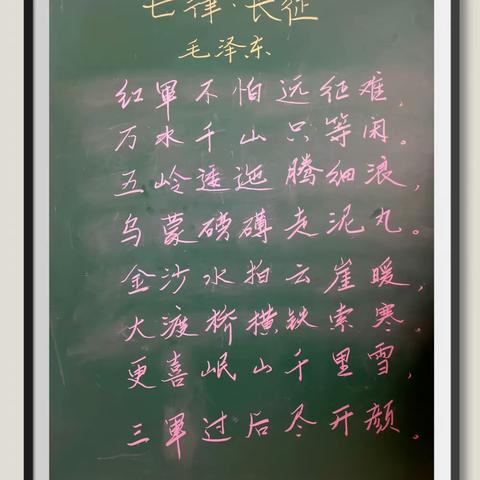 七律·长征
毛泽东
红軍不怕远征难，
万水千山只等闲。
五岭逶迤腾细浪，
乌蒙磅礴走泥丸。
金沙水拍云崖暖，
大渡桥横铁索寒。
更喜岷山千里雪，
三軍过后尽开颜。